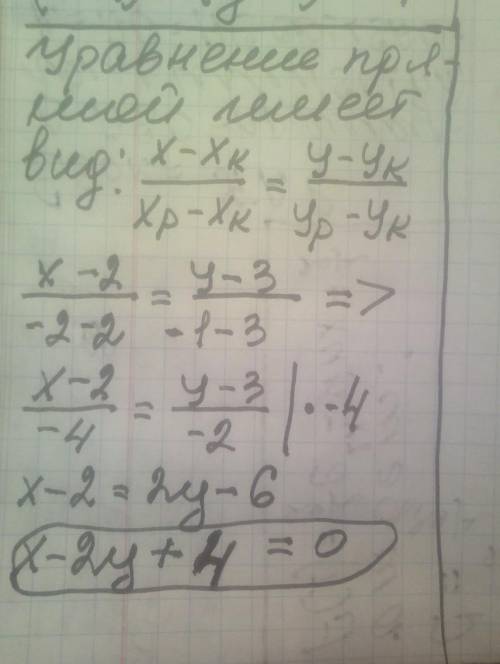 Уравнение пря-
мой имеет
вид: x-xк/xр-xк = y-yк/yр-yк
x-2/-2-2 = y-3/-1-3 =>
x-2/-4 = y-3/-2 | • -4
x-2 = 2y-6
x-2y+4 = 0